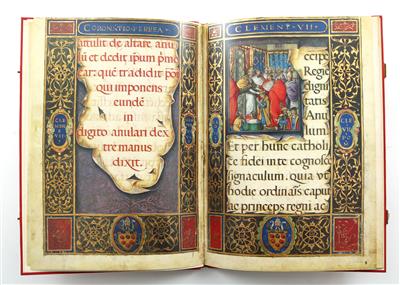 CORONATIO FERREA
attulit de altare, anu
lū et dedit ipsum p̄me
ear: quē tradidit po
qui imponens
eundē
in
digito anulari dex
tre manus
dixit.
CLEMENT · VII ·
ccipe
Regie
digni
tatis
Anu
lum.
Et per hunc catholi
ce fidei in te cognosce
signaculum. quia vt
hodie ordinaris caput
ac princeps regni ac